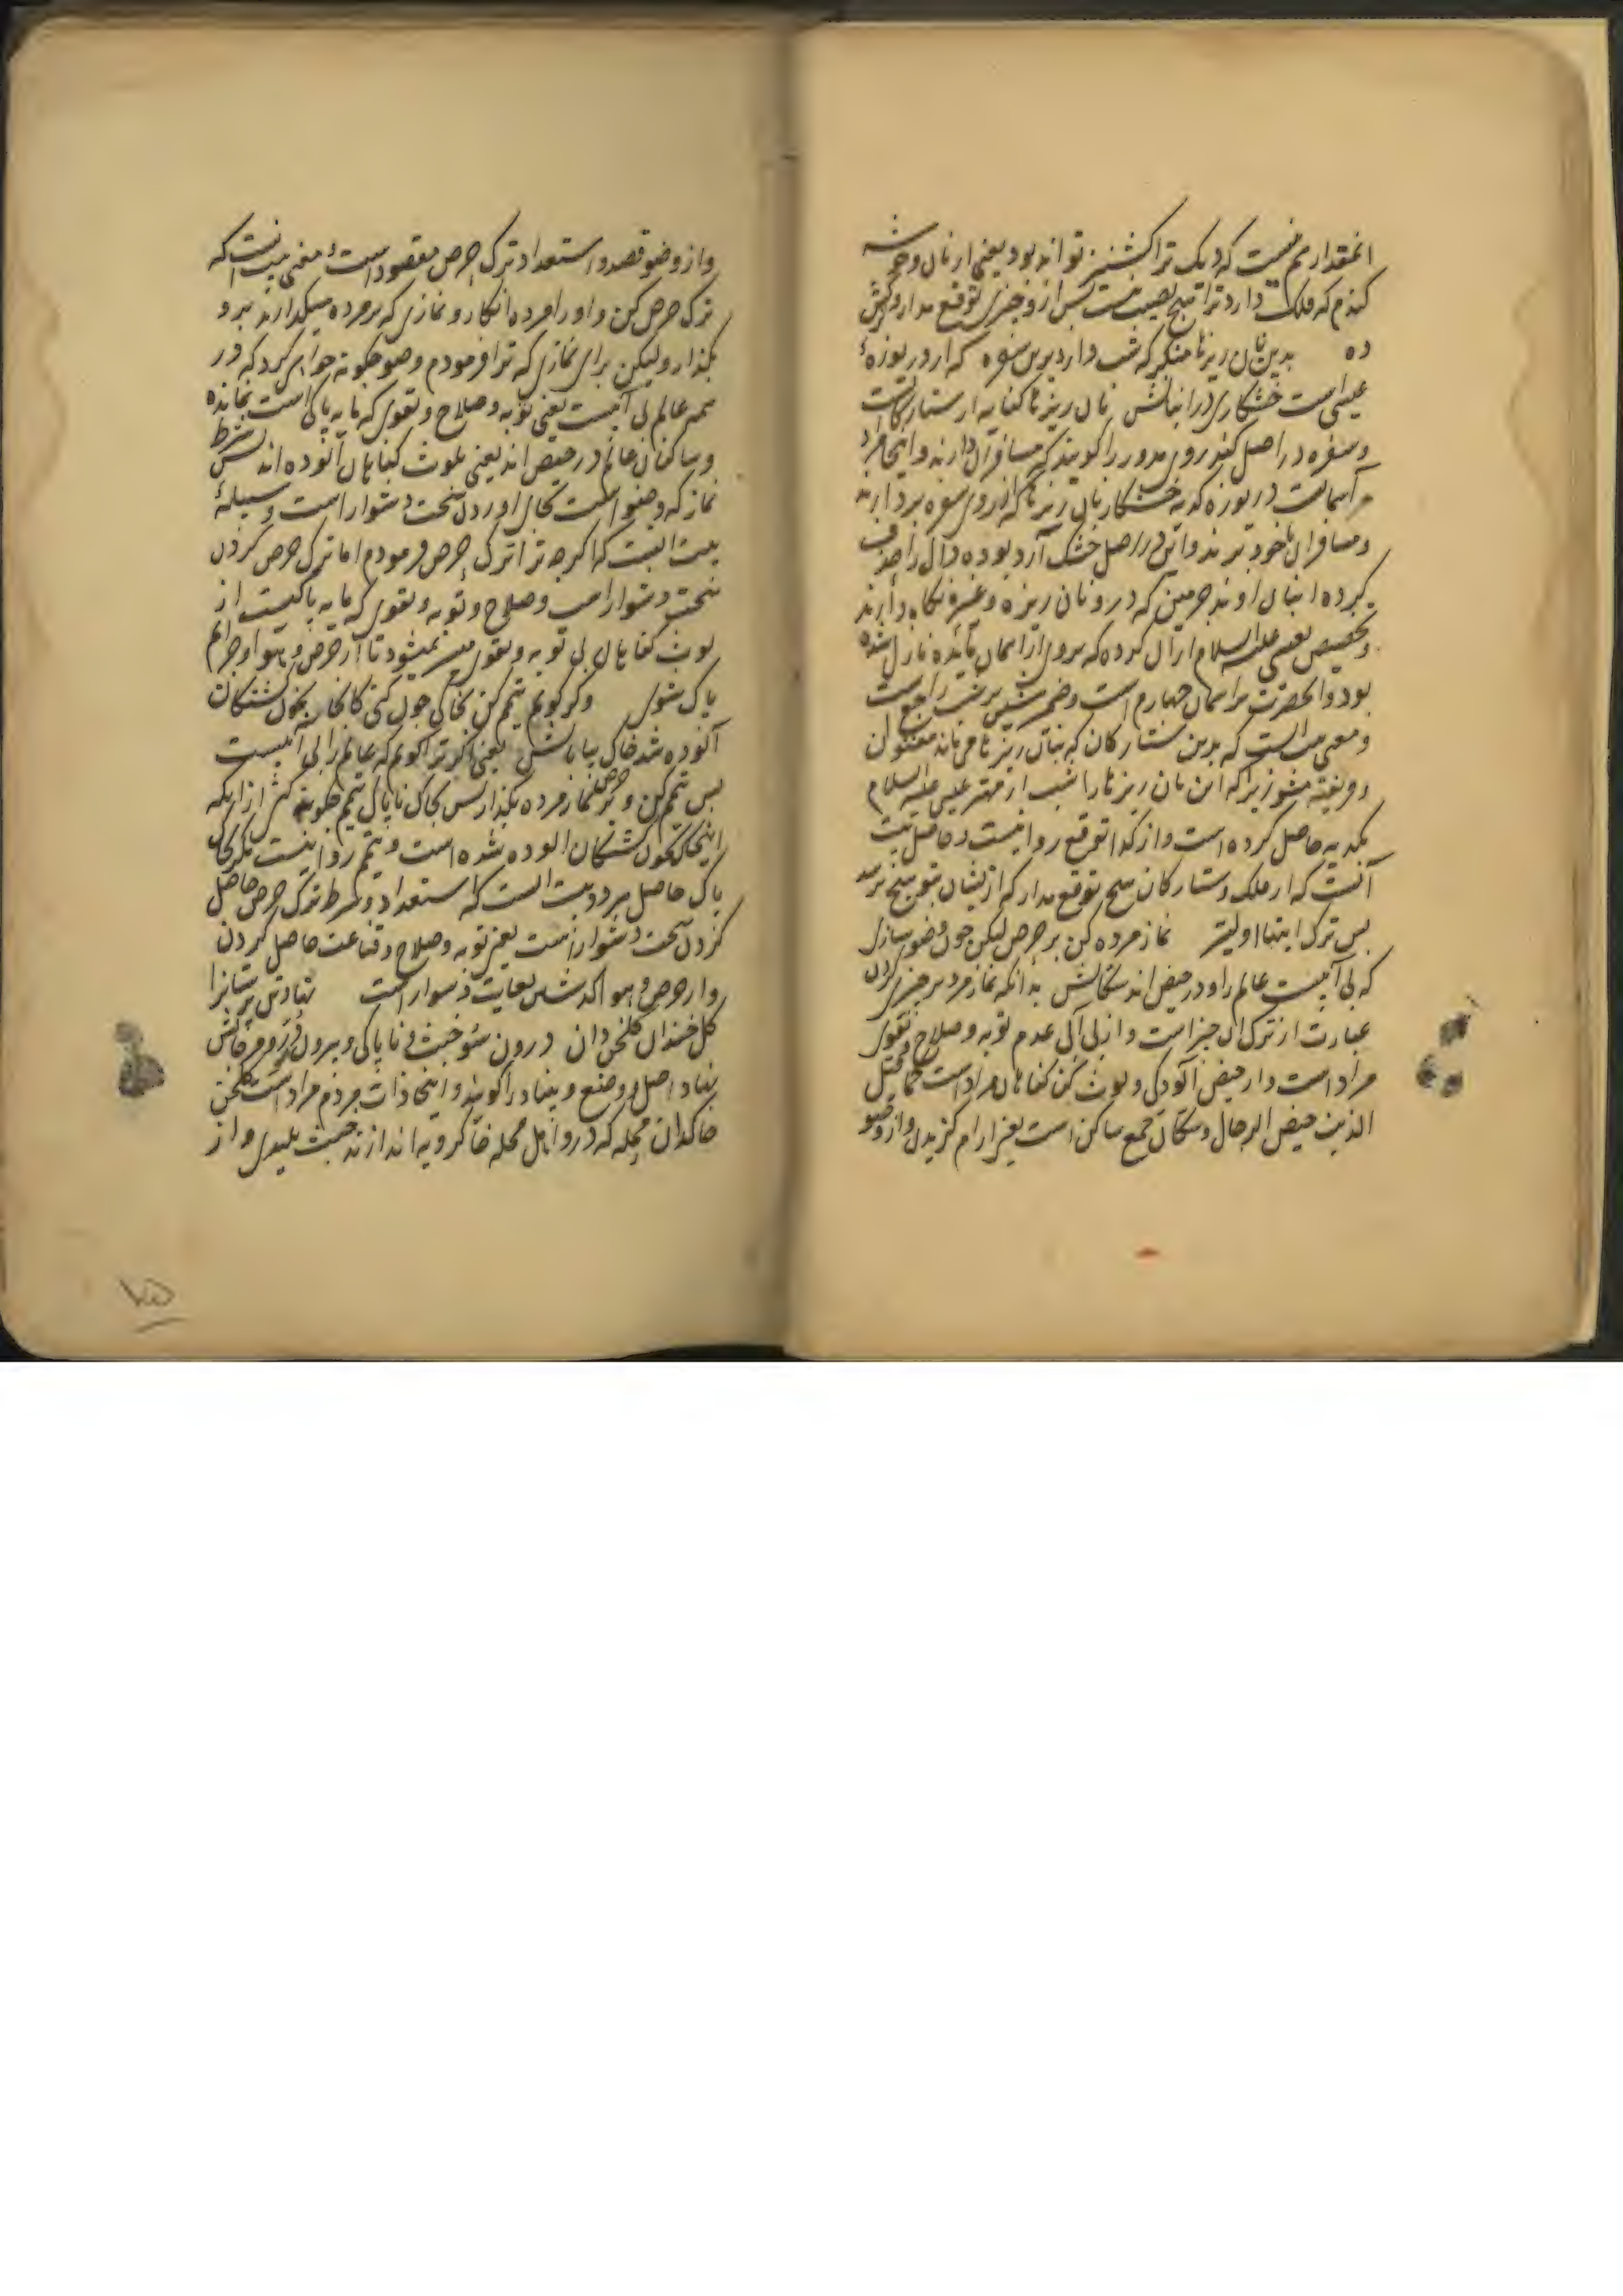 انمقدار هم نیست که دیک ترا کشنیز تواند بود یعنی از نان و خوشه
کندم که فلک دارد ترا هیچ نصیب نیست پس ازو چیزی توقع مدار و ترکش
ده بدین نان ریزها منکر که شب دارد برین سفره که از دریوزهٔ
عیسی است خشکاری در انبانش نان ریزها کنایه از ستارکانست
و سفره در اصل کندروی مدور را کویند که مسافران دارند و اینجا مراد
آسمانست دریوزه کدیه خشکار نان ریزها که از روی سفره بردارند
و مسافران با خود برند و در اصل خشک آرد بوده دال را حذف
کرده انبان اوند چرمین که درو نان ریزه و غیره نکاه دارند
و تخصیص بعیسی علیه السلام از آن کرده که بروی از اسمان مائده نازل شده
بود و انحضرت بر اسمان چهارم است و ضمیر شین بر شب راجع است
و معنی بیت انست که بدین ستارکان که بنان ریزها می مانند مفتون
و فریفته مشو زیرا که این نان ریزها را شب از مهتر عیسی علیه السلام
بکدیه حاصل کرده است و از کدا توقع روا نیست و حاصل بیت
آنست که از فلک و ستارکان هیچ توقع مدار که ازیشان بتو هیچ نرسد
پس ترک اینها اولیتر نماز مرده کن بر حرص لیکن چون وضو سازی
که بی آبیست عالم را و در حیض اند سکانش بدانکه نماز مرده بر چیزی کردن
عبارت از ترک آن چیز است و از بی آبی عدم توبه و صلاح و تقوی
مراد است و از حیض آلودکی و لوث کناهان مراد است کما قیل
الذنب حیض الرجال و سکان جمع ساکن است یعنی ارام کزیدن و از وضو
و از وضو قصد و استعداد ترک حرص مقصود است معنی بیت انست که
ترک حرص کن و او را مرده انکار و نمازی که بر مرده میکذارند برو
بکذار ولیکن برای نمازی که ترا فرمودم وضو چکونه خواهی کرد که در
همه عالم بی آبیست یعنی توبه و صلاح و تقوی که مایه پاکی است نمانده
و ساکنان عالم در حیض اند یعنی بلوث کناهان آلوده اند پس شرط
نماز که وضو است بجای اوردن سخت دشوار است وسیلهٔ
بیت انست که اکرچه ترا ترک حرص فرمودم اما ترک حرص کردن
سخت دشوار است و صلاح و توبه و تقوی که مایه پاکیست از
لوث کناهان بی توبه و تقوی میسر نمیشود تا از حرص و هوا و جرائم
پاک شوی وکر کویم تیمم کن بخاکی چون کنی کانجا بخون کشتکان
آلوده شد خاک بیابانش یعنی اکر ترا کویم که عالم را بی آبیست
پس تیمم کن و بر حرص نماز مرده بکذار پس بخاک ناپاک تیمم چکونه کنی از انکه
اینجا بخون کشتکان الوده شده است و تیمم روا نیست مکر بخاک
پاک حاصل هر دو بیت انست که استعداد و شرط ترک حرص حاصل
کردن سخت دشوار است یعنی توبه و صلاح و قناعت حاصل کردن
و از حرص و هوا کذشتن بغایت دشوار است نهاد تن پرستانرا
کل خندان کلخن دان درون سو خبث و ناپاکی و بیرون زر و مرجانش
نهاد اصل و وضع و بنیاد را کویند و اینجا ذات مردم مراد است کلخن
خاکدان محله که درو اهل محله خاکروبه اندازند خبث پلیدی و از